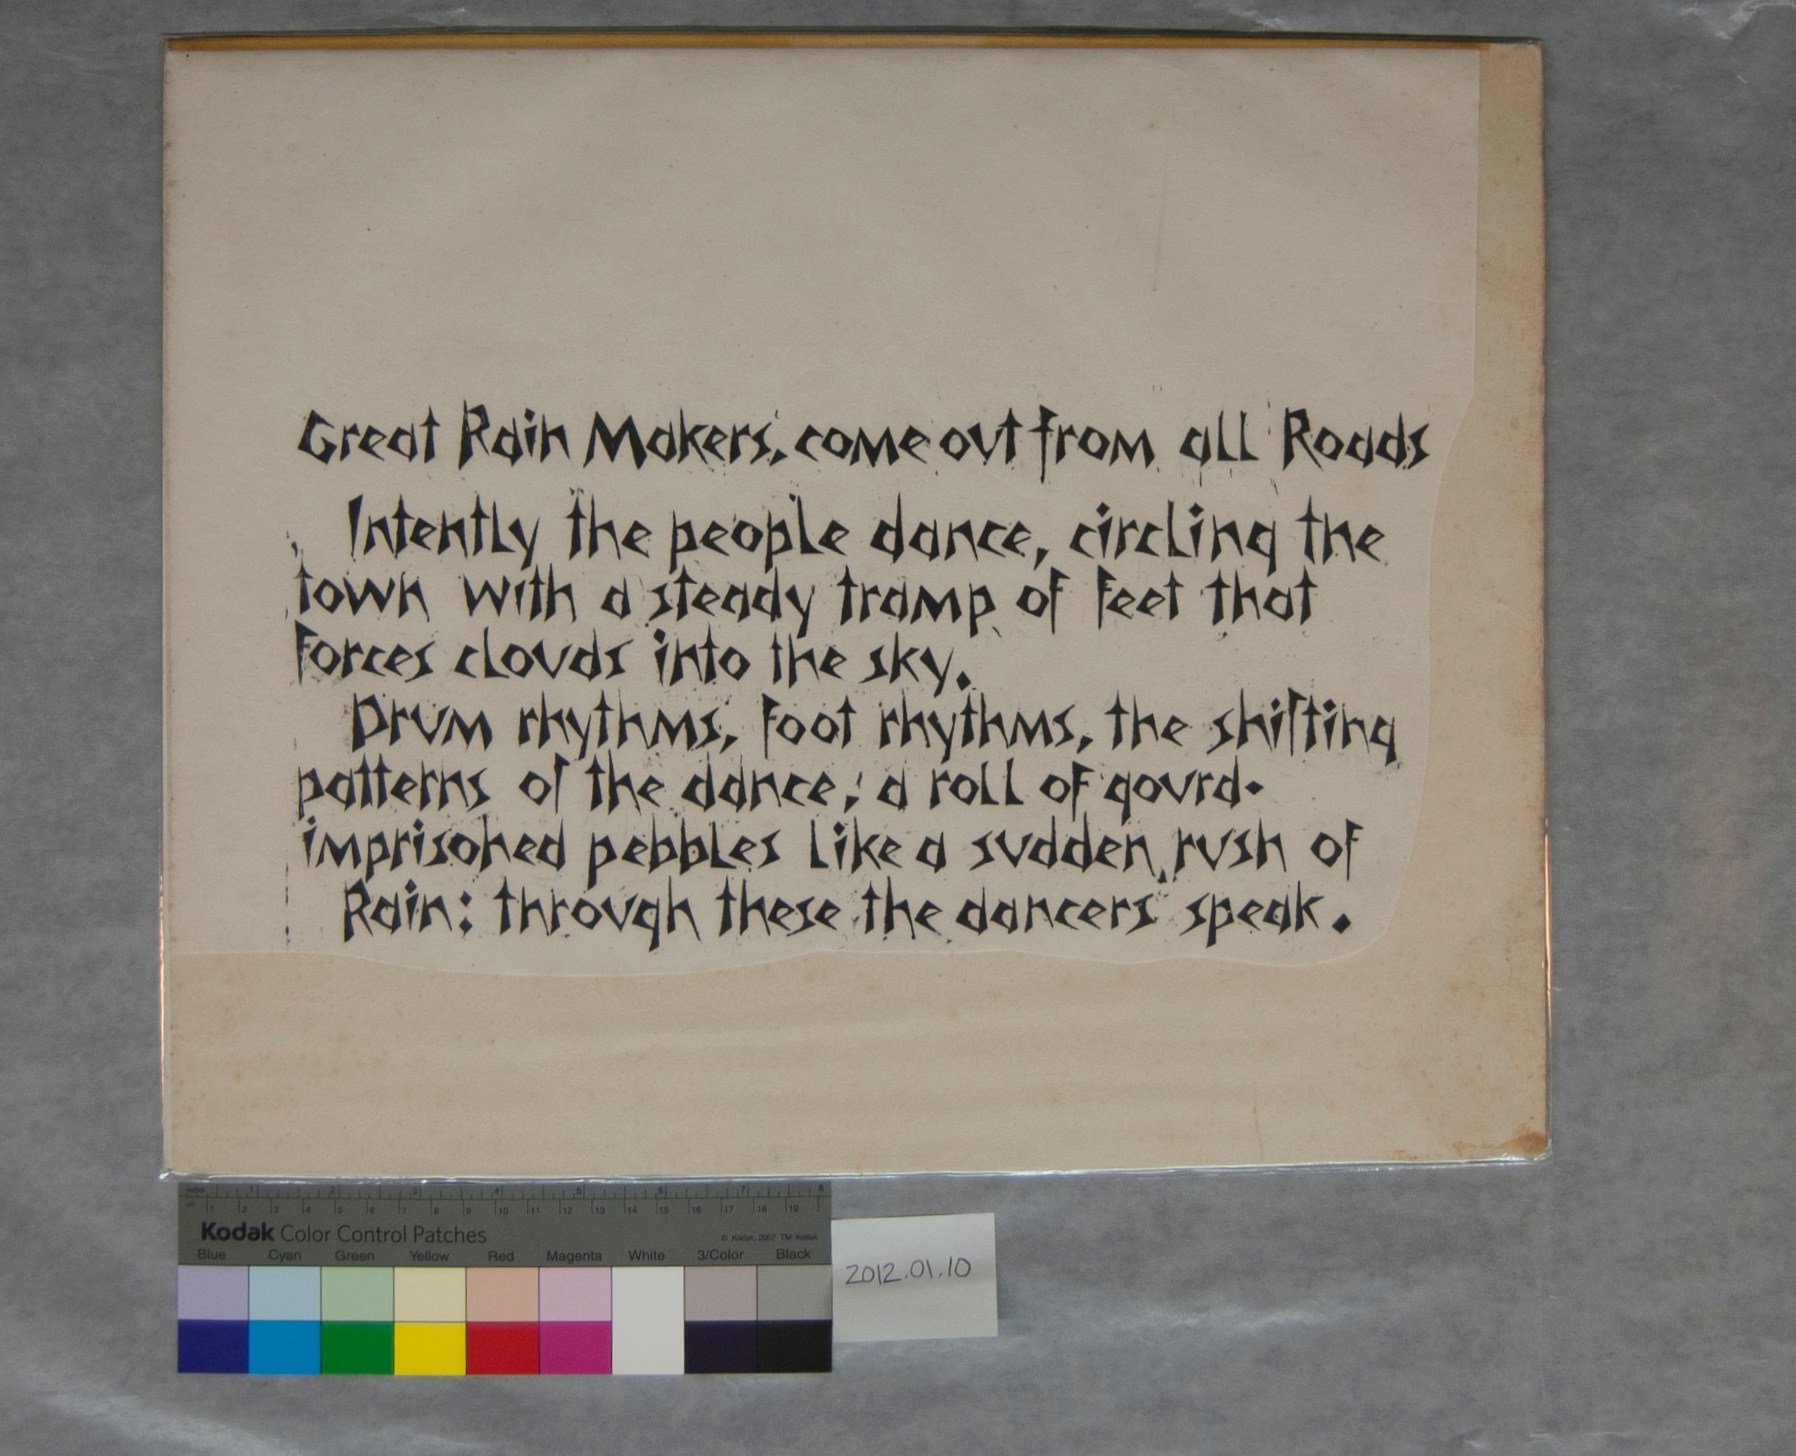 Great Rain Makers, come out from all Roads
Intently the people dance, circling the
town with a steady tramp of feet that
forces clouds into the sky.
Drum rhythms, foot rhythms, the shifting
patterns of the dance; a roll of gourd-
imprisoned pebbles like a sudden rush of
Rain: through these the dancers speak.
inches 1 2 3 4 5 6 7 8
cm 1 2 3 4 5 6 7 8 9 10 11 12 13 14 15 16 17 18 19
Kodak Color Control Patches
© Kodak, 2007 TM: Kodak
Blue Cyan Green Yellow Red Magenta White 3/Color Black
2012.01.10